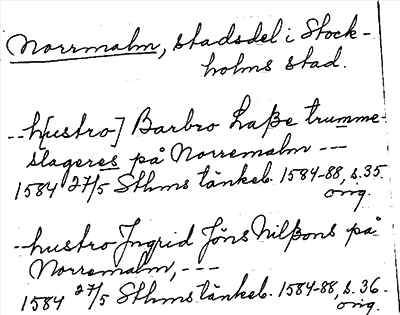 Norrmalm, stadsdel i Stock-
holms stad.
--h[ustro] Barbro Laße trumme-
slageres på Norremalm ---
1584 27/5 Sthms tänkeb. 1584-88, s. 35
orig.
--hustro Jngrid Jöns Nilßons på
Norremalm, ---
1584 27/5 Sthms tänkeb. 1584-88, s. 36.
orig.